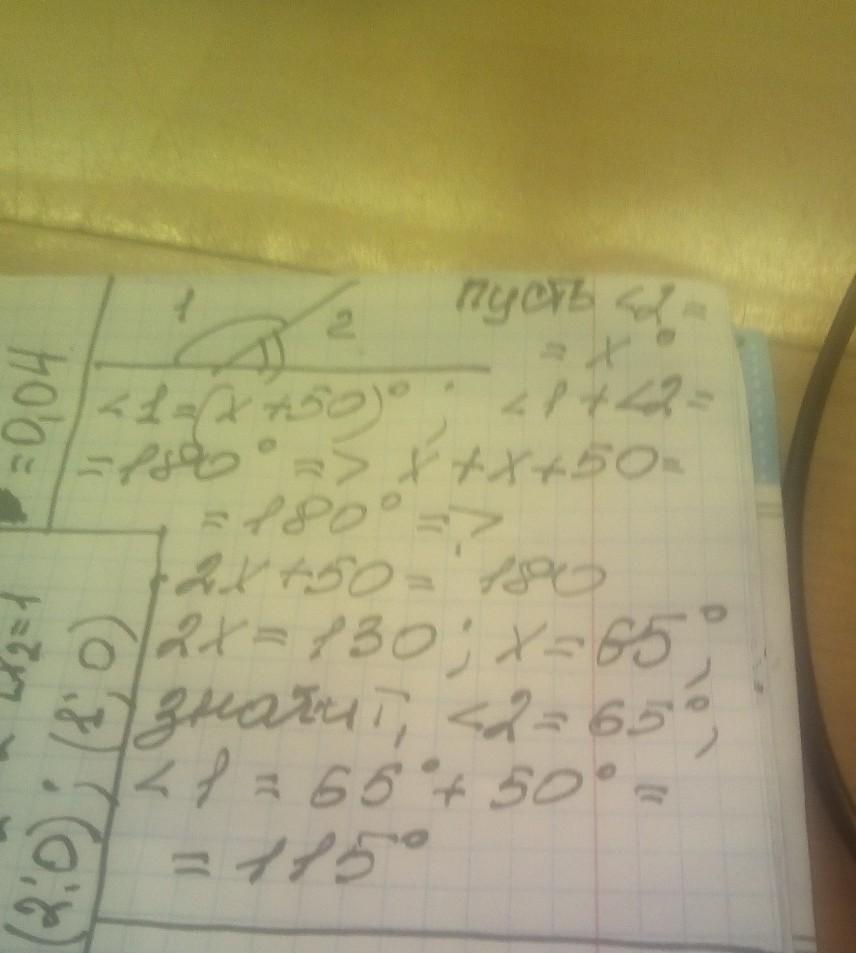 1
2
пусть <2=
= x°
<1=(x+50)°; <1+<2=
=180° => x+x+50=
=180° =>
2x+50= 180
2x=130; x=65°,
значит, <2=65°,
<1 = 65°+50° =
= 115°
=0,04
x₂=1
(2;0)